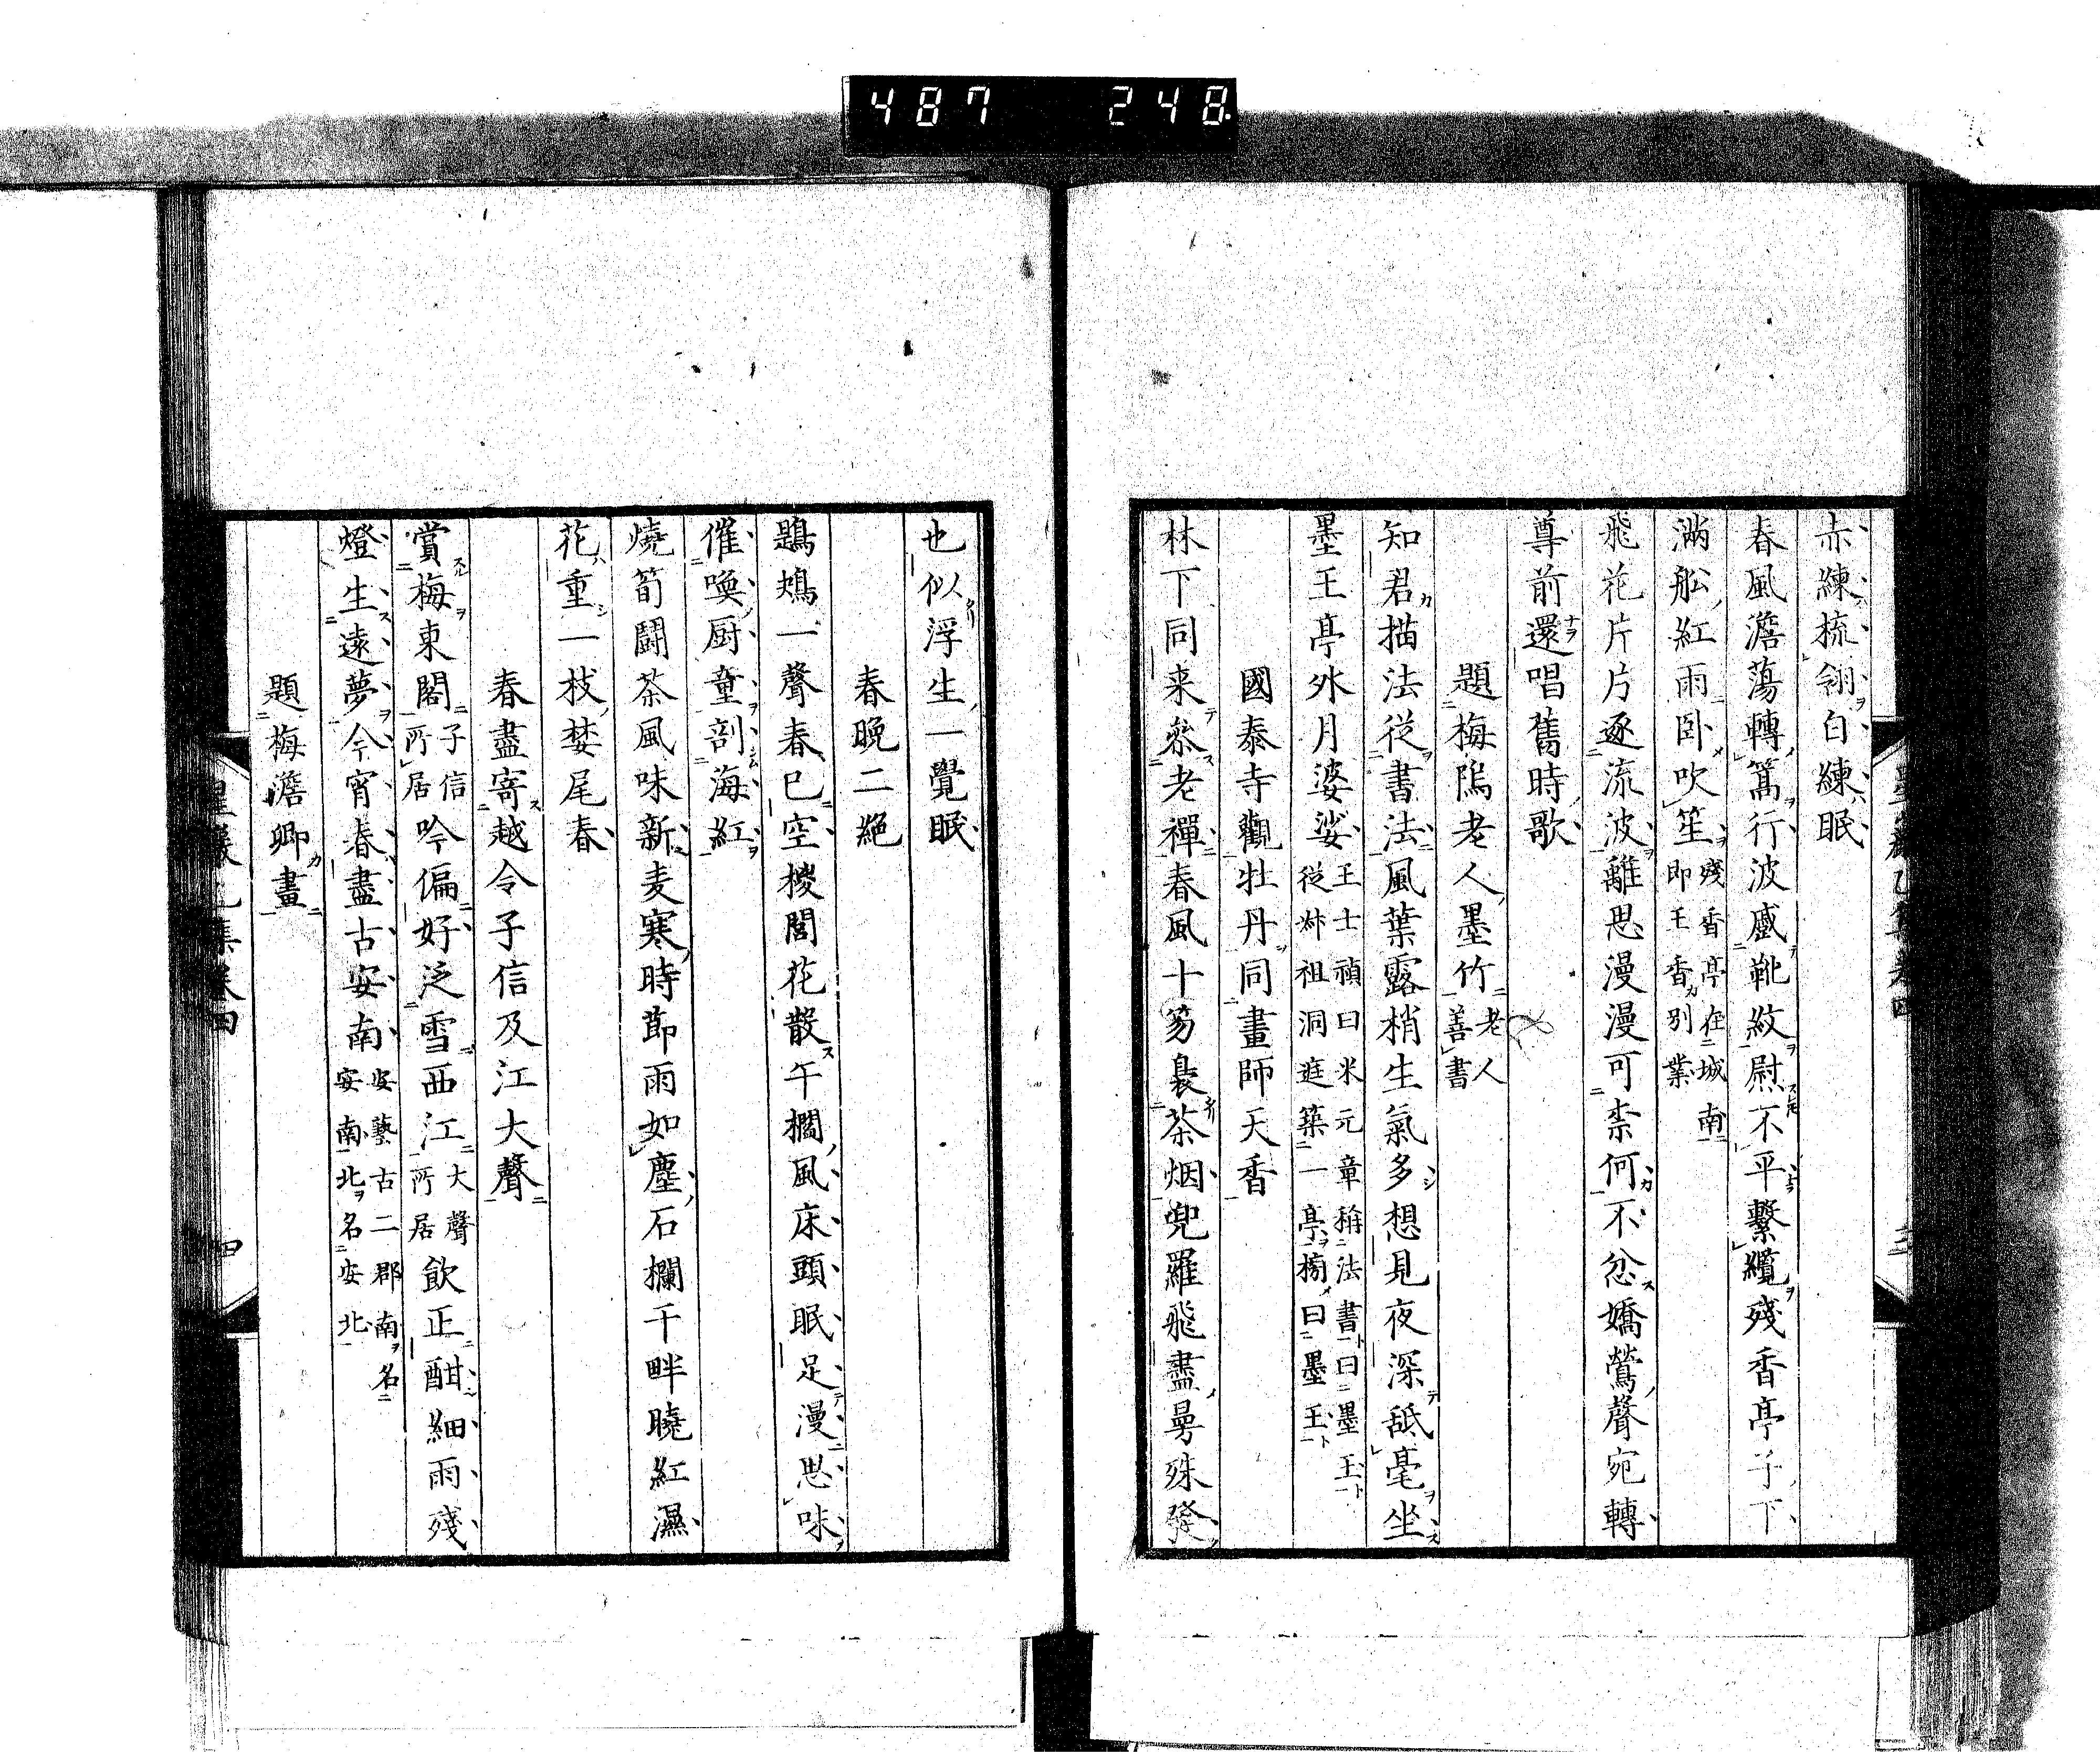 487 248
赤練梳翎白練眠
春風澹蕩轉篙行波蹙靴紋尉不平繫纜殘香亭子下
滿舩紅雨臥吹笙殘香亭在城南即王香別業
飛花片片逐流波離思漫漫可柰何不忿嬌鶯聲宛轉
尊前還唱舊時歌
題梅隖老人墨竹老人善書
知君描法從書法風葉露梢生氣多想見夜深舐毫坐
墨王亭外月婆娑王士禎曰米元章稱法書曰墨王從叔祖洞庭築一亭榜曰墨王
國泰寺觀牡丹同畫師天香
林下同来叅老禪春風十笏裊茶烟兜羅飛盡曼殊發
也似浮生一覺眠
春晚二絕
鶗鴂一聲春已空樓閣花散午欄風床頭眠足漫思味
催喚厨童剖海紅
燒筍鬪茶風味新麦寒時節雨如塵石欄干畔曉紅濕
花重一枝婪尾春
春盡寄越令子信及江大聲
賞梅東閣子信所居吟偏好泛雪西江大聲所居飲正酣細雨殘
燈生遠夢今宵春盡古安南安藝古二郡南名安南北名安北
題梅澹卿畫
三
四